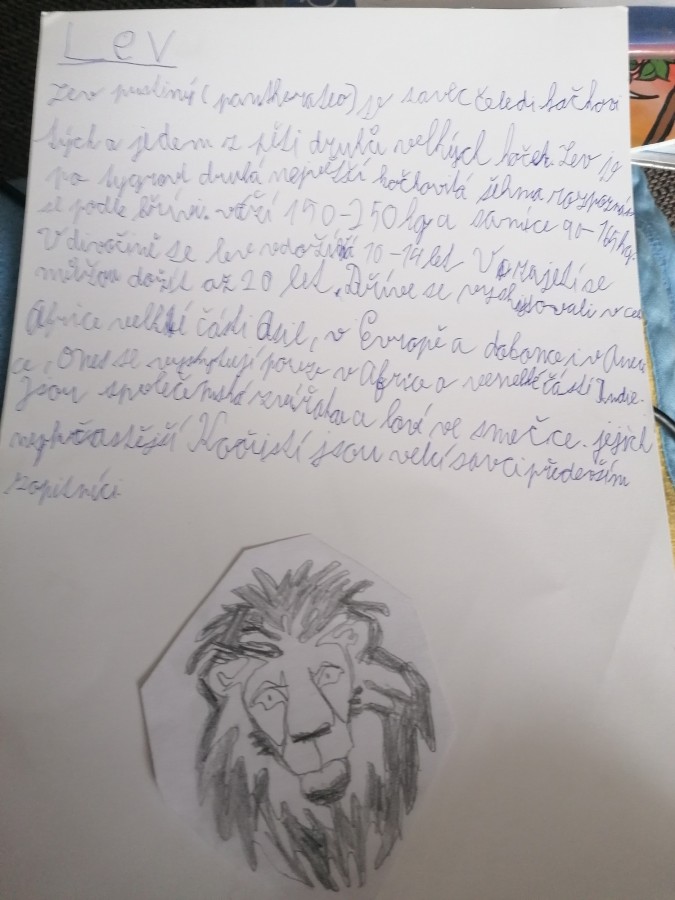 Lev
Lev pustiný (panthera leo) je savec čeledi kočkovi
tých a jedem z pěti druhů velkých koček. Lev je
po tygrovi druhá největší kočkovitá šelma rozpoznám
se podle hřívi. váží 150-250kg a samice 90-165kg.
V divočině se lev vdožívá 10-14 let V zajetí se
můžou dožít až 20 let. Dříve se vyskytovali v celé
Africe velké části Asie, v Evropě a dokonce i v Ameri
ce, Dnes se vyskytují pouze v Africe a v části Indie.
Jsou společenská zvířata a loví ve smečce. jejich
nejčastější Kořistí jsou velcí savci především
kopitníci